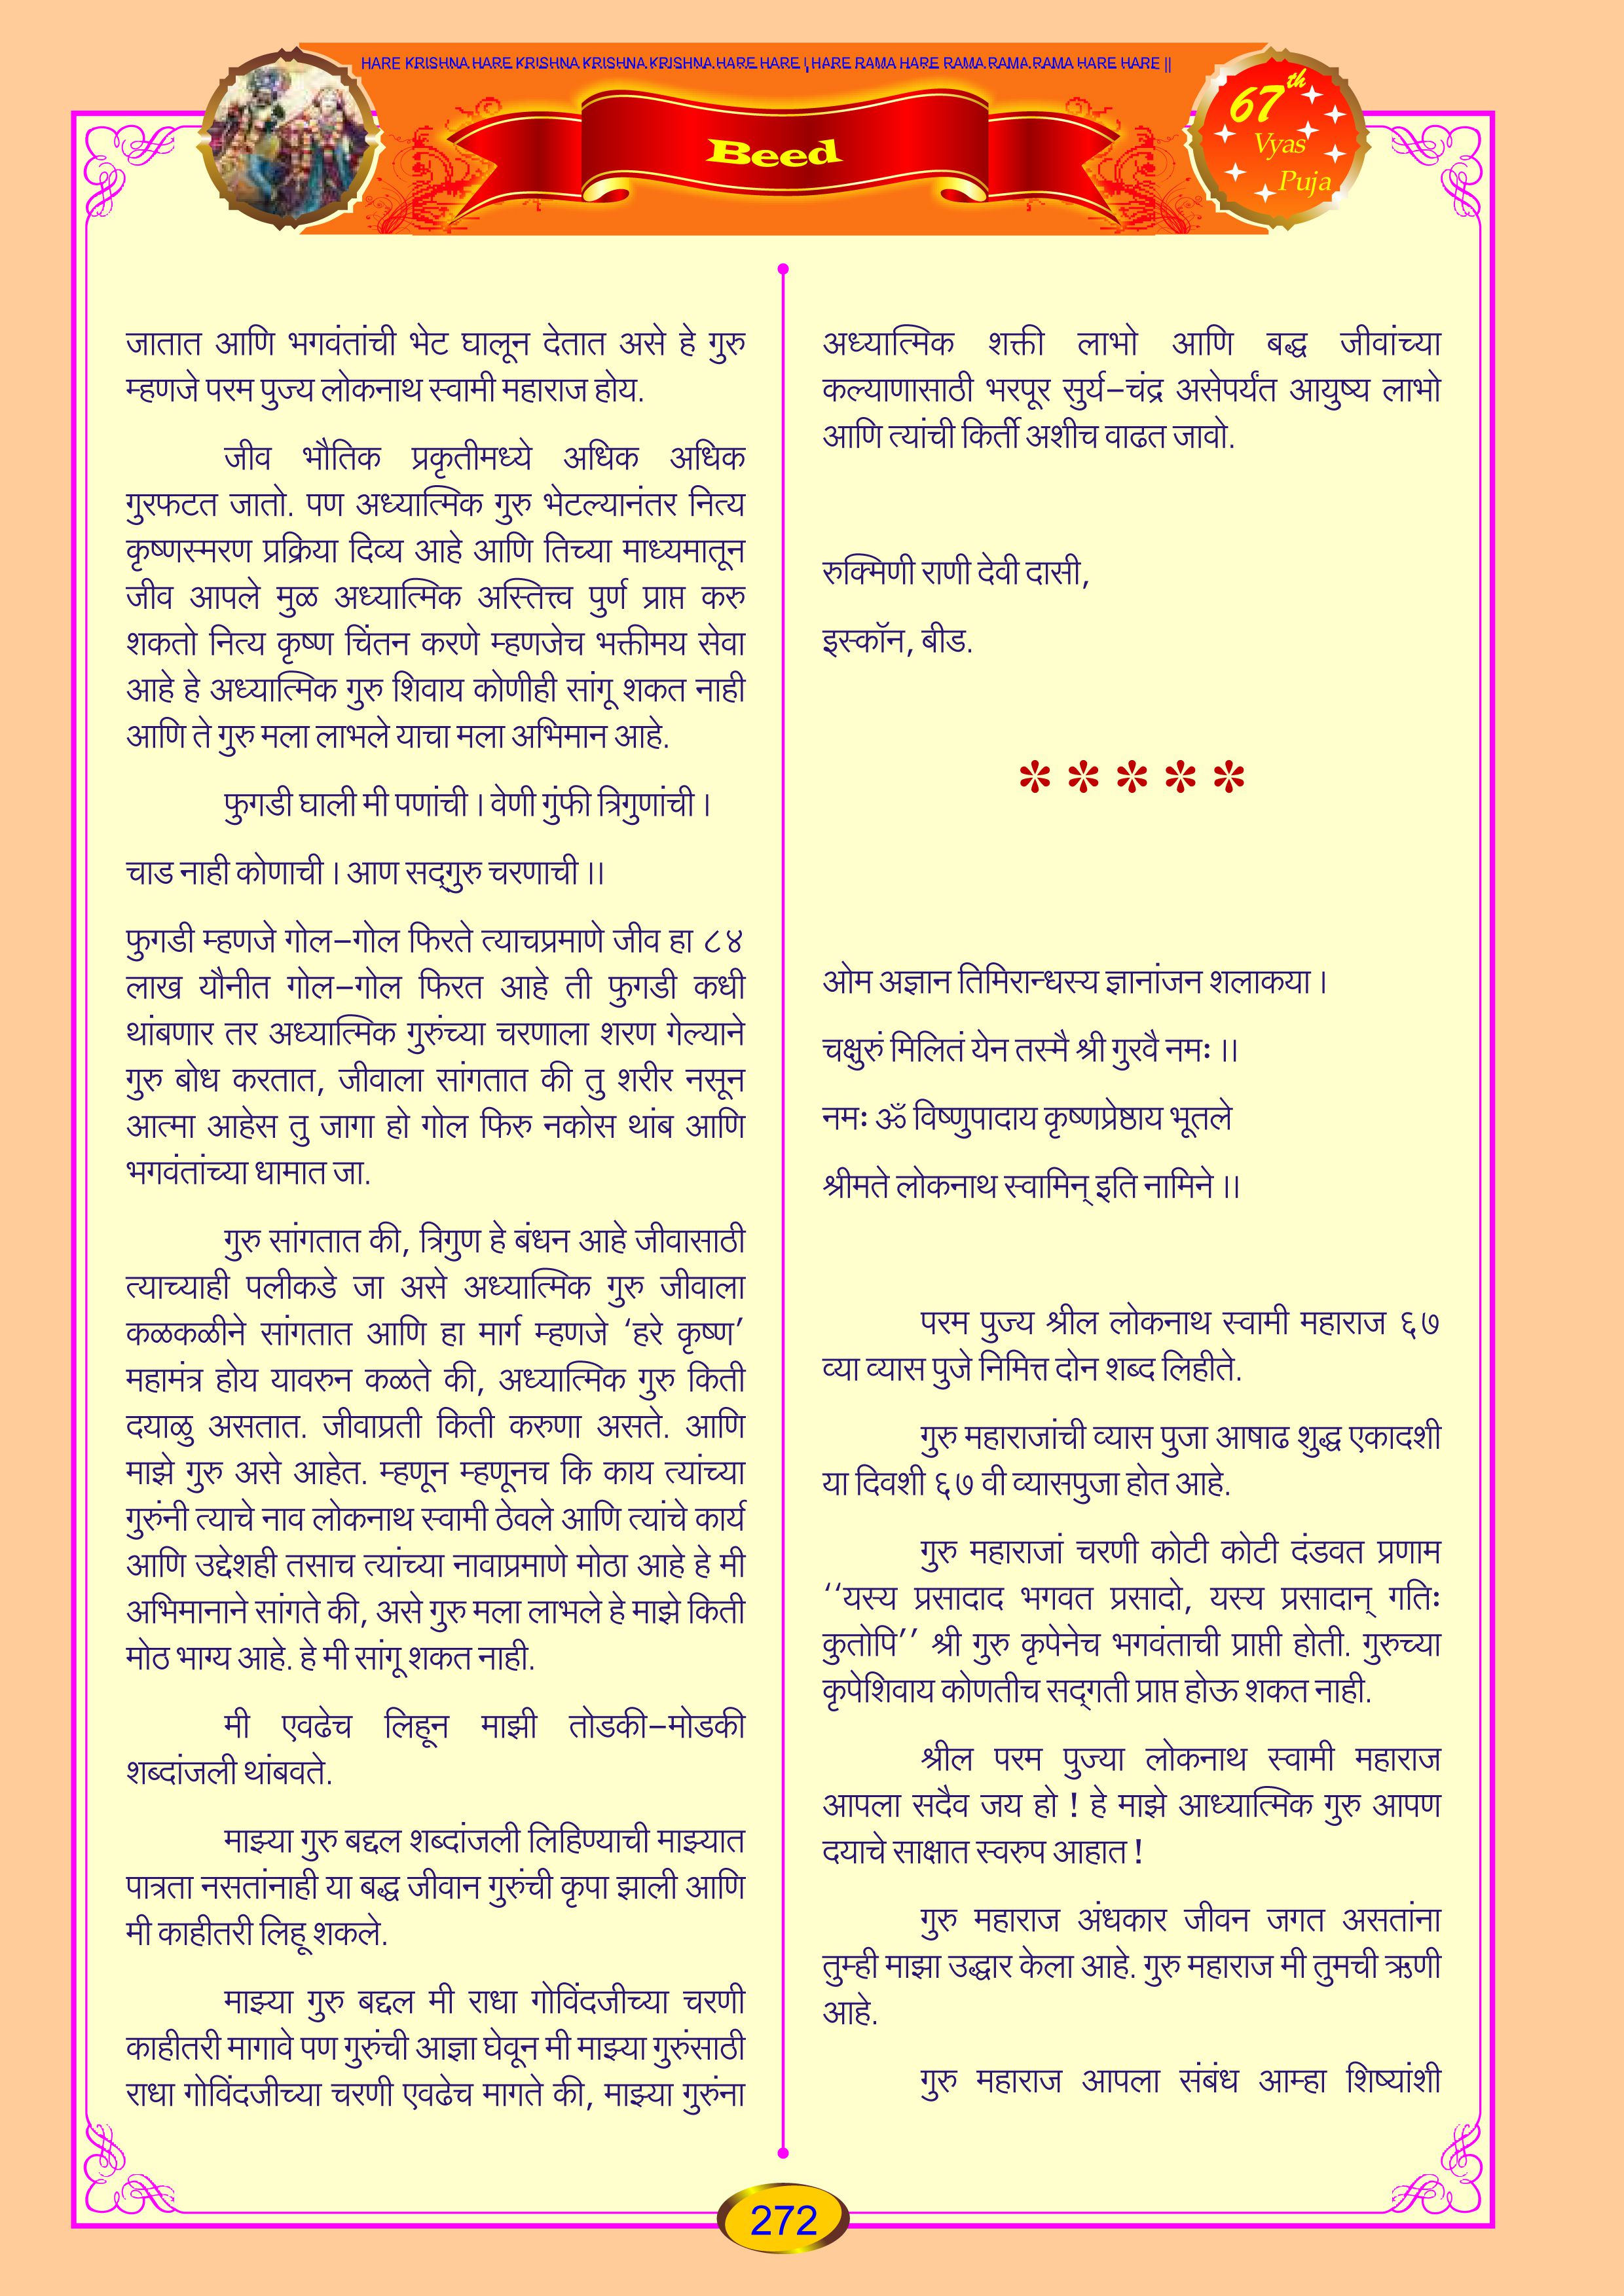 HARE KRISHNA HARE KRISHNA KRISHNA KRISHNA HARE HARE | HARE RAMA HARE RAMA RAMA RAMA HARE HARE ||
Beed
67th
Vyas
Puja
जातात आणि भगवंतांची भेट घालून देतात असे हे गुरु
म्हणजे परम पुज्य लोकनाथ स्वामी महाराज होय.
जीव भौतिक प्रकृतीमध्ये अधिक अधिक
गुरफटत जातो. पण अध्यात्मिक गुरु भेटल्यानंतर नित्य
कृष्णस्मरण प्रक्रिया दिव्य आहे आणि तिच्या माध्यमातून
जीव आपले मुळ अध्यात्मिक अस्तित्त्व पुर्ण प्राप्त करु
शकतो नित्य कृष्ण चिंतन करणे म्हणजेच भक्तीमय सेवा
आहे हे अध्यात्मिक गुरु शिवाय कोणीही सांगू शकत नाही
आणि ते गुरु मला लाभले याचा मला अभिमान आहे.
फुगडी घाली मी पणांची । वेणी गुंफी त्रिगुणांची ।
चाड नाही कोणाची । आण सद्‌गुरु चरणाची ।।
फुगडी म्हणजे गोल-गोल फिरते त्याचप्रमाणे जीव हा ८४
लाख यौनीत गोल-गोल फिरत आहे ती फुगडी कधी
थांबणार तर अध्यात्मिक गुरुंच्या चरणाला शरण गेल्याने
गुरु बोध करतात, जीवाला सांगतात की तु शरीर नसून
आत्मा आहेस तु जागा हो गोल फिरु नकोस थांब आणि
भगवंतांच्या धामात जा.
गुरु सांगतात की, त्रिगुण हे बंधन आहे जीवासाठी
त्याच्याही पलीकडे जा असे अध्यात्मिक गुरु जीवाला
कळकळीने सांगतात आणि हा मार्ग म्हणजे ‘हरे कृष्ण’
महामंत्र होय यावरुन कळते की, अध्यात्मिक गुरु किती
दयाळु असतात. जीवाप्रती किती करुणा असते. आणि
माझे गुरु असे आहेत. म्हणून म्हणूनच कि काय त्यांच्या
गुरुंनी त्याचे नाव लोकनाथ स्वामी ठेवले आणि त्यांचे कार्य
आणि उद्देशही तसाच त्यांच्या नावाप्रमाणे मोठा आहे हे मी
अभिमानाने सांगते की, असे गुरु मला लाभले हे माझे किती
मोठ भाग्य आहे. हे मी सांगू शकत नाही.
मी एवढेच लिहून माझी तोडकी-मोडकी
शब्दांजली थांबवते.
माझ्या गुरु बद्दल शब्दांजली लिहिण्याची माझ्यात
पात्रता नसतांनाही या बद्ध जीवान गुरुंची कृपा झाली आणि
मी काहीतरी लिहू शकले.
माझ्या गुरु बद्दल मी राधा गोविंदजीच्या चरणी
काहीतरी मागावे पण गुरुंची आज्ञा घेवून मी माझ्या गुरुंसाठी
राधा गोविंदजीच्या चरणी एवढेच मागते की, माझ्या गुरुंना
अध्यात्मिक शक्ती लाभो आणि बद्ध जीवांच्या
कल्याणासाठी भरपूर सुर्य-चंद्र असेपर्यंत आयुष्य लाभो
आणि त्यांची किर्ती अशीच वाढत जावो.
रुक्मिणी राणी देवी दासी,
इस्कॉन, बीड.
* * * * *
ओम अज्ञान तिमिरान्धस्य ज्ञानांजन शलाकया ।
चक्षुरुं मिलितं येन तस्मै श्री गुरवै नमः ।।
नमः ॐ विष्णुपादाय कृष्णप्रेष्ठाय भूतले
श्रीमते लोकनाथ स्वामिन् इति नामिने ।।
परम पुज्य श्रील लोकनाथ स्वामी महाराज ६७
व्या व्यास पुजे निमित्त दोन शब्द लिहीते.
गुरु महाराजांची व्यास पुजा आषाढ शुद्ध एकादशी
या दिवशी ६७ वी व्यासपुजा होत आहे.
गुरु महाराजां चरणी कोटी कोटी दंडवत प्रणाम
‘‘यस्य प्रसादाद भगवत प्रसादो, यस्य प्रसादान् गतिः
कुतोपि’’ श्री गुरु कृपेनेच भगवंताची प्राप्ती होती. गुरुच्या
कृपेशिवाय कोणतीच सद्‌गती प्राप्त होऊ शकत नाही.
श्रील परम पुज्या लोकनाथ स्वामी महाराज
आपला सदैव जय हो ! हे माझे आध्यात्मिक गुरु आपण
दयाचे साक्षात स्वरुप आहात !
गुरु महाराज अंधकार जीवन जगत असतांना
तुम्ही माझा उद्धार केला आहे. गुरु महाराज मी तुमची ऋणी
आहे.
गुरु महाराज आपला संबंध आम्हा शिष्यांशी
272